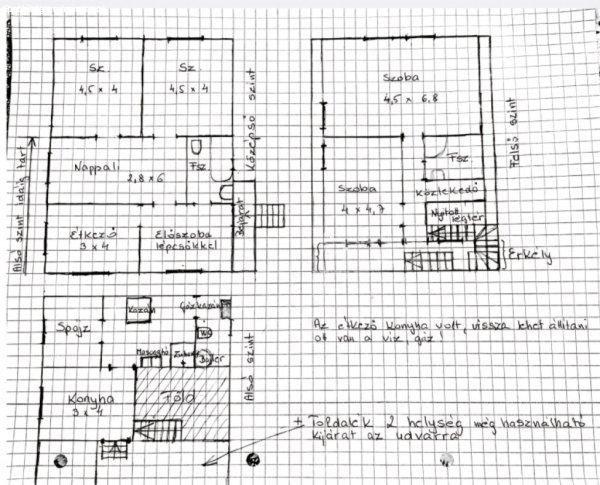 Sz.
4,5 x 4
Sz.
4,5 x 4
Középső szint
Nappali
2,8 x 6
Fsz.
Alsó szint idáig tart
Étkező
3 x 4
Előszoba
lépcsőkkel
Bejárat
Szoba
4,5 x 6,8
Felső szint
Szoba
4 x 4,7
Fsz.
Közlekedő
Nyitott
légtér
Erkély
Spájz
Kazán
Gázkazán
WC
Mosogató
Zuhany
Bojler
Alsó szint
Konyha
3 x 4
Föld
Az étkező konyha volt, vissza lehet állítani
ott van a víz, gáz!
+ Toldalék 2 helység még használható
kijárat az udvarra